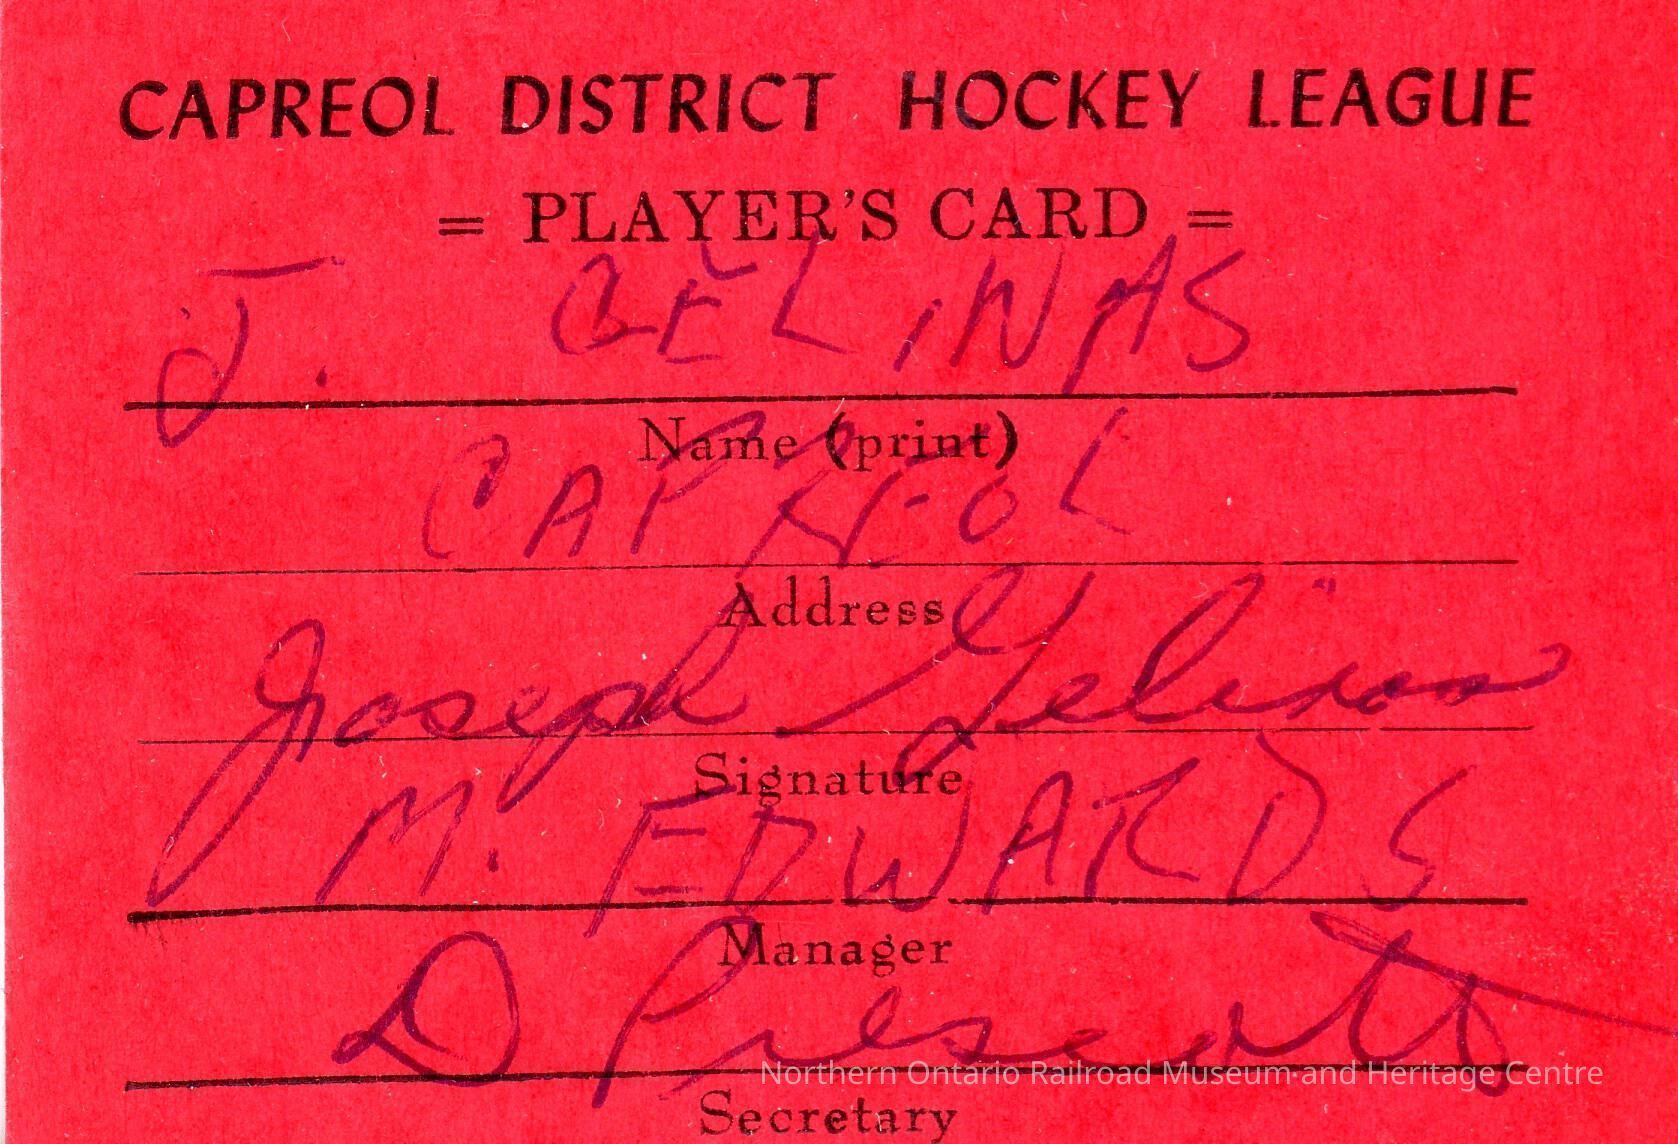 CAPREOL DISTRICT HOCKEY LEAGUE
= PLAYER'S CARD =
J. GELINAS
Name (print)
CAPREOL
Address
Joseph Gelinas
Signature
M. EDWARDS
Manager
D Prescott
Northern Ontario Railroad Museum and Heritage Centre
Secretary